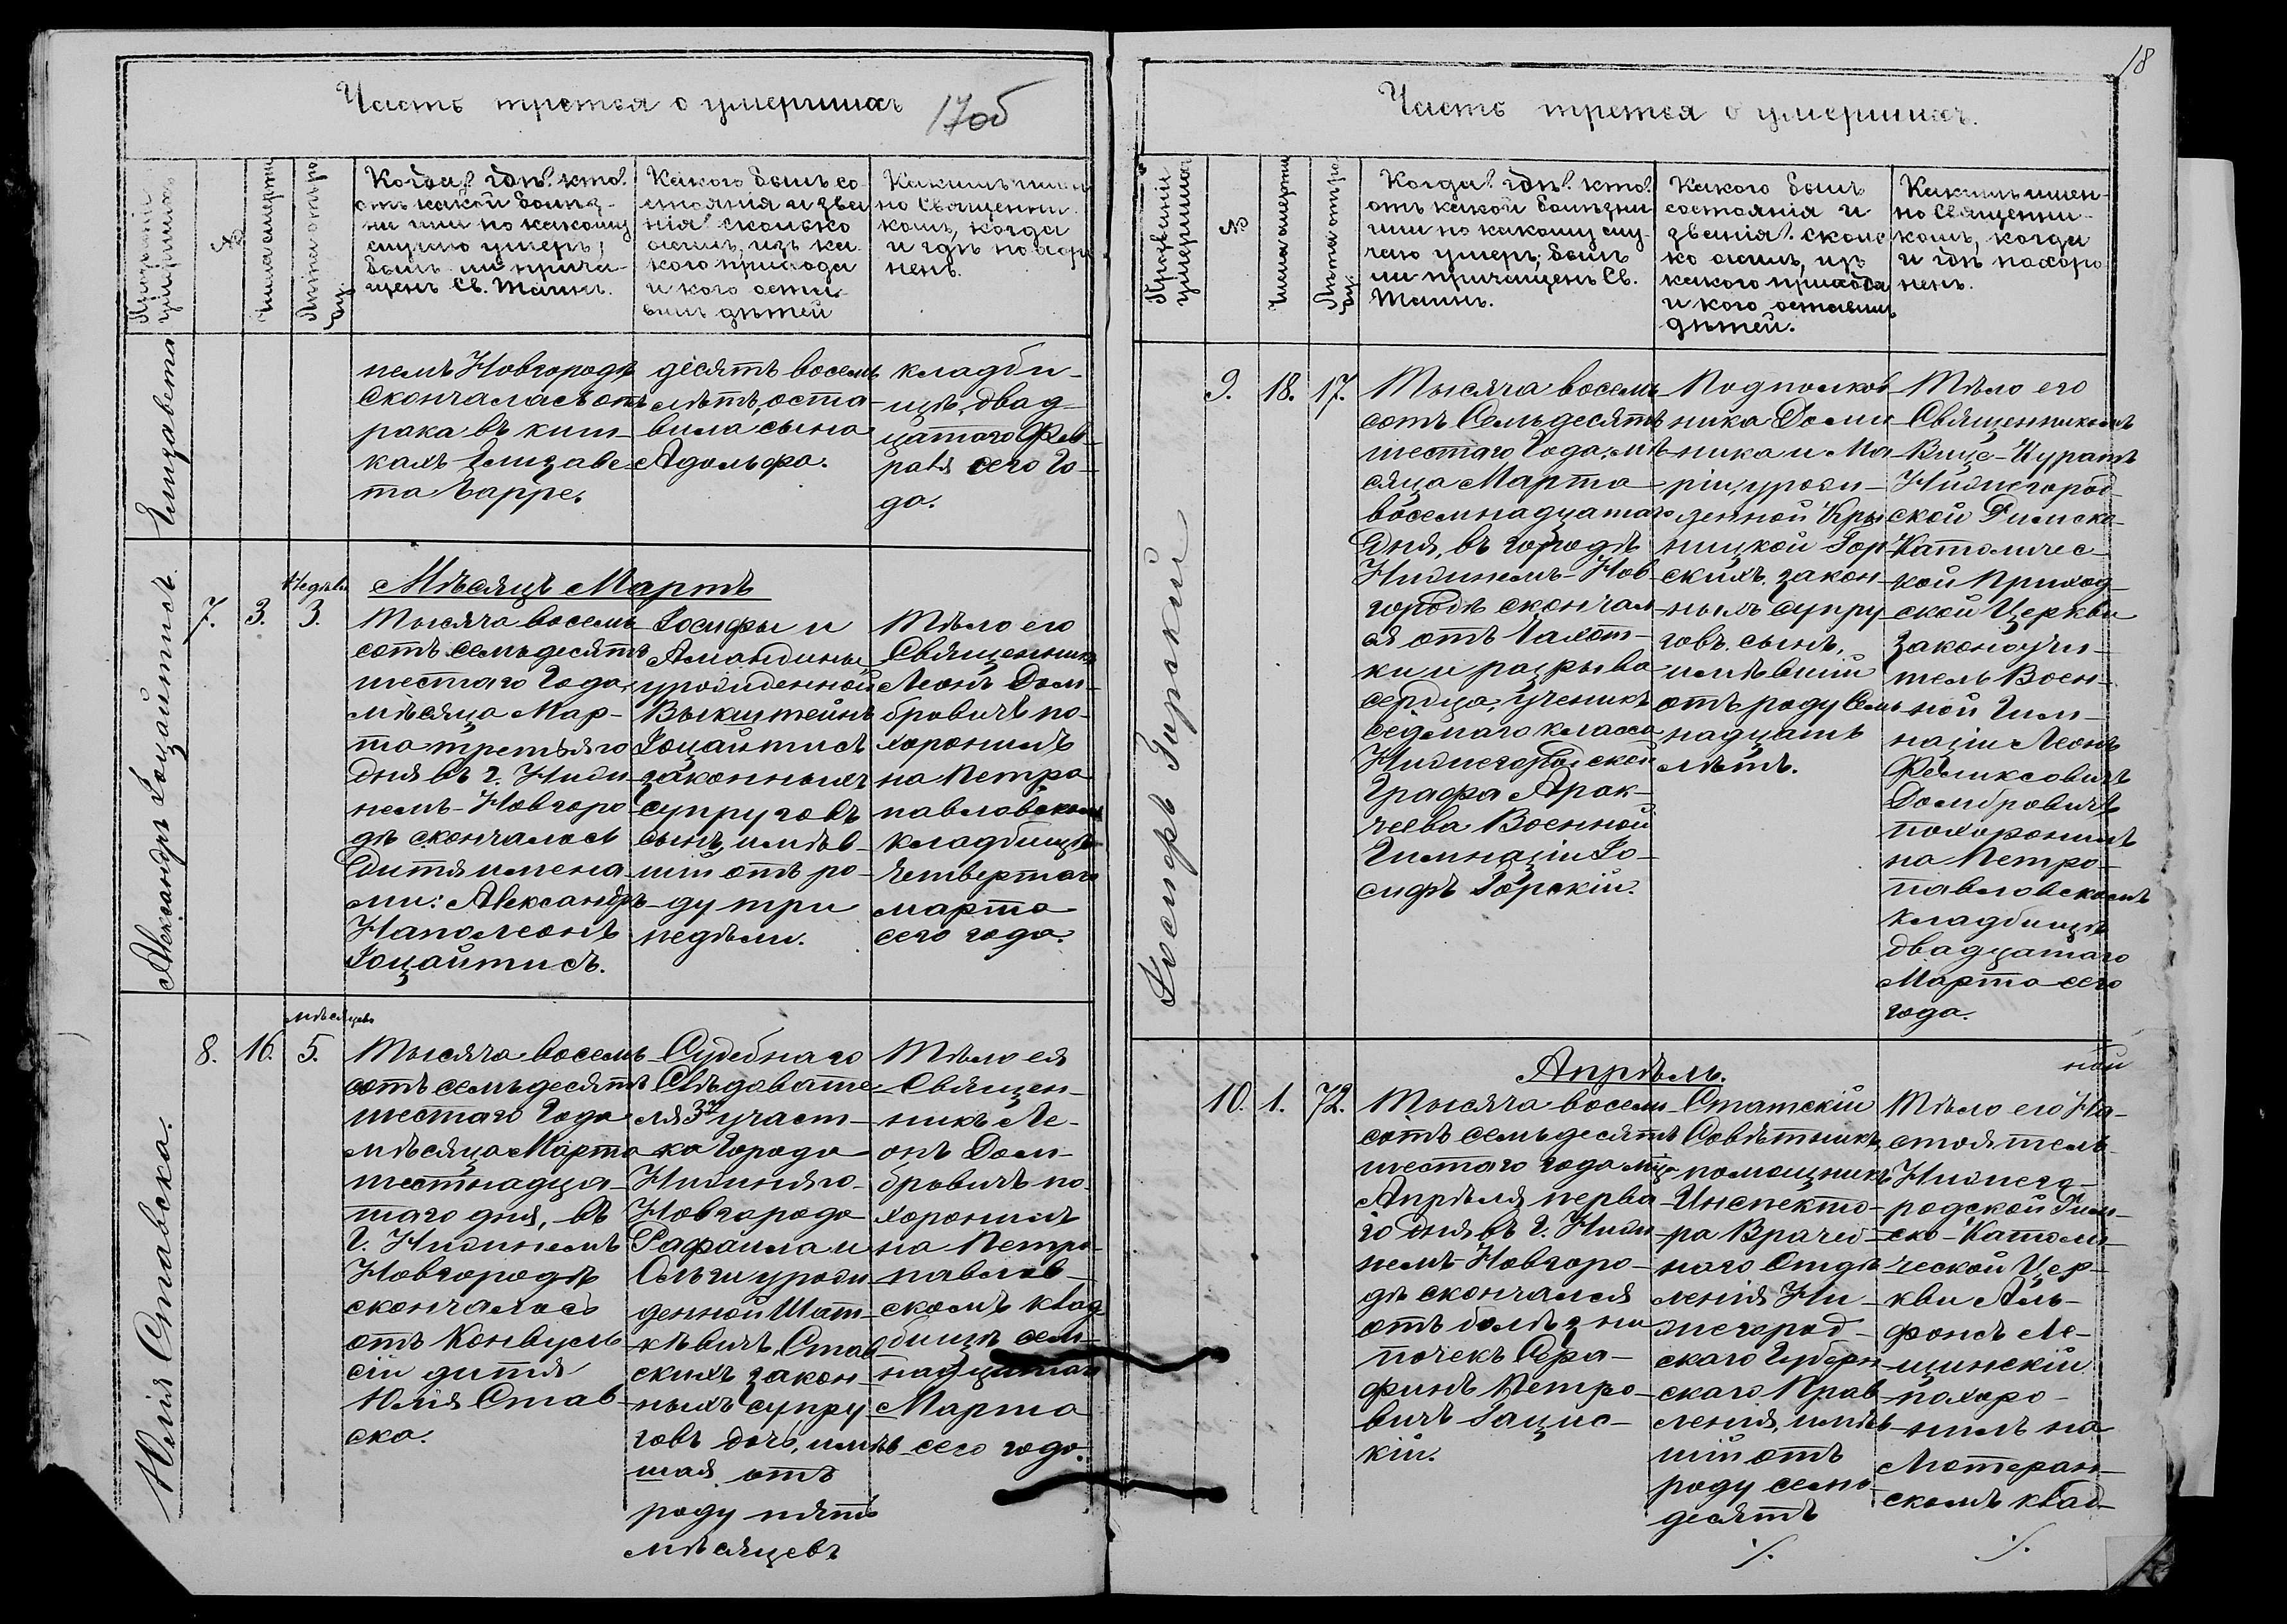 Часть третья о умершихъ
17об
Прозванiи умершихъ
№
Числа смерти
Лѣта отъ роду.
Когда? гдѣ? кто?
отъ какой болѣз-
ни или по какому
случаю умеръ;
былъ ли прича-
щенъ Св. Таинъ.
Какого былъ со-
стоянiя и зва
нiя? сколько
жилъ, изъ ка
кого прихода
и кого оста-
вилъ дѣтей
Какимъ имен
но Священни
комъ, когда
и гдѣ похоро
ненъ.
Елизавета
немъ Новгородѣ
скончалась отъ
рака въ киш-
кахъ Елизаве-
та Барре.
десятъ восемь
лѣтъ, оста-
вила сына
Адольфа.
кладби-
щѣ, двад-
цатаго Фев-
раля сего го-
да.
Александръ Iоцайтисъ.
7.
3.
Недѣли
3.
Мѣсяцъ Мартъ
Тысяча восемь
сотъ семьдесятъ
шестаго Года,
мѣсяца Мар-
та третьяго
дня въ г. Ниж-
немъ-Новгоро
дѣ скончалось
Дитя имена-
ми: Александръ-
Наполеонъ
Iоцайтисъ.
Iосифы и
Амандины,
урожденной
Выкиштейнъ
Iоцайтисъ
законныхъ
супруговъ
сынъ, имѣв-
шiй отъ ро-
ду три
недѣли.
Тѣло его
Священникъ
Леонъ Дом-
бровичъ по-
хоронилъ
на Петро
павловскомъ
кладбищѣ
четвертаго
марта
сего года.
Юлiя Ставска.
8.
16.
мѣсяцевъ
5.
Тысяча восемь
сотъ семьдесятъ
шестаго Года
мѣсяца Марта
шестнадца-
таго дня, въ
г. Нижнемъ
Новгородѣ
скончалось
отъ Конвуль
сiи дитя
Юлiя Став-
ска.
Судебнаго
Слѣдовате
ля 3го участ-
ка Города
Нижняго-
Новгорода
Рафаила и
Ольги урож
денной Шат-
кѣвичъ, Став
скихъ закон-
ныхъ супру
говъ дочь, имѣв
шая отъ
роду пять
мѣсяцевъ
Тѣло ея
Священ-
никъ Ле-
онъ Дом-
бровичъ по-
хоронилъ
на Петро-
павлов-
скомъ клад
бищѣ сем-
надцатаго
Марта
сего года.
18
Часть третья о умершихъ.
Прозванiи умершихъ
№
Числа смерти
Лѣта отъ роду.
Когда? гдѣ? кто?
отъ какой болѣзни
или по какому слу-
чаю умеръ; былъ
ли причащенъ Св.
Таинъ.
Какого былъ
состоянiя и
званiя? сколь
ко жилъ, изъ
какого прихода
и кого оставилъ
дѣтей.
Какимъ имен-
но Священни-
комъ, когда
и гдѣ похоро
ненъ.
Iосифъ Горскiй
9.
18.
17.
Тысяча восемь
сотъ Семьдесятъ
шестаго Года, мѣ-
сяца Марта
восемнадцатаго
Дня, въ городѣ
Нижнемъ-Нов-
городѣ скончал-
ся отъ Чахот-
ки и разрыва
сердца, ученикъ
седьмаго класса
Нижегородской
Графа Арак-
чеева Военной
Гимназiи Iо-
сифъ Горскiй.
Подполков
ника Доми-
ника и Ма-
рiи, урож-
денной Кры
ницкой Гор
скихъ, закон-
ныхъ супру
говъ сынъ,
имѣвшiй
отъ роду Сем
надцать
лѣтъ.
Тѣло его
Священникомъ
Вице-Куратъ
Нижегород-
ской Римско-
Католичес-
кой Приход-
ской Церкви
законоучи-
тель Воен-
ной Гим-
назiи Леонъ
Феликсовичъ
Домбровичъ
похоронилъ
на Петро-
павловскомъ
кладбищѣ
двадцатаго
Марта сего
года.
Апрѣль.
10.
1.
72.
Тысяча восемь
сотъ семьдесятъ
шестаго года мца
Апрѣля перва
го дня въ г. Ниж
немъ-Новгоро-
дѣ скончался
отъ болѣзни
почекъ Сера-
финъ Петро-
вичъ Гацис-
кiй.
Статскiй
Совѣтникъ,
помощникъ
Инспекто-
ра Врачеб-
наго Отдѣ
ленiя Ни-
жегород-
скаго Губерн
скаго Прав
ленiя, имѣв
шiй отъ
роду семь
десятъ
٪.
ной
Тѣло его На-
стоятель
Нижего-
родской Рим-
ско-Католи-
ческой Цер-
кви Аль-
фонсъ Ле-
щинскiй
похоро-
нилъ на
Лютеран-
скомъ клад-
٪.